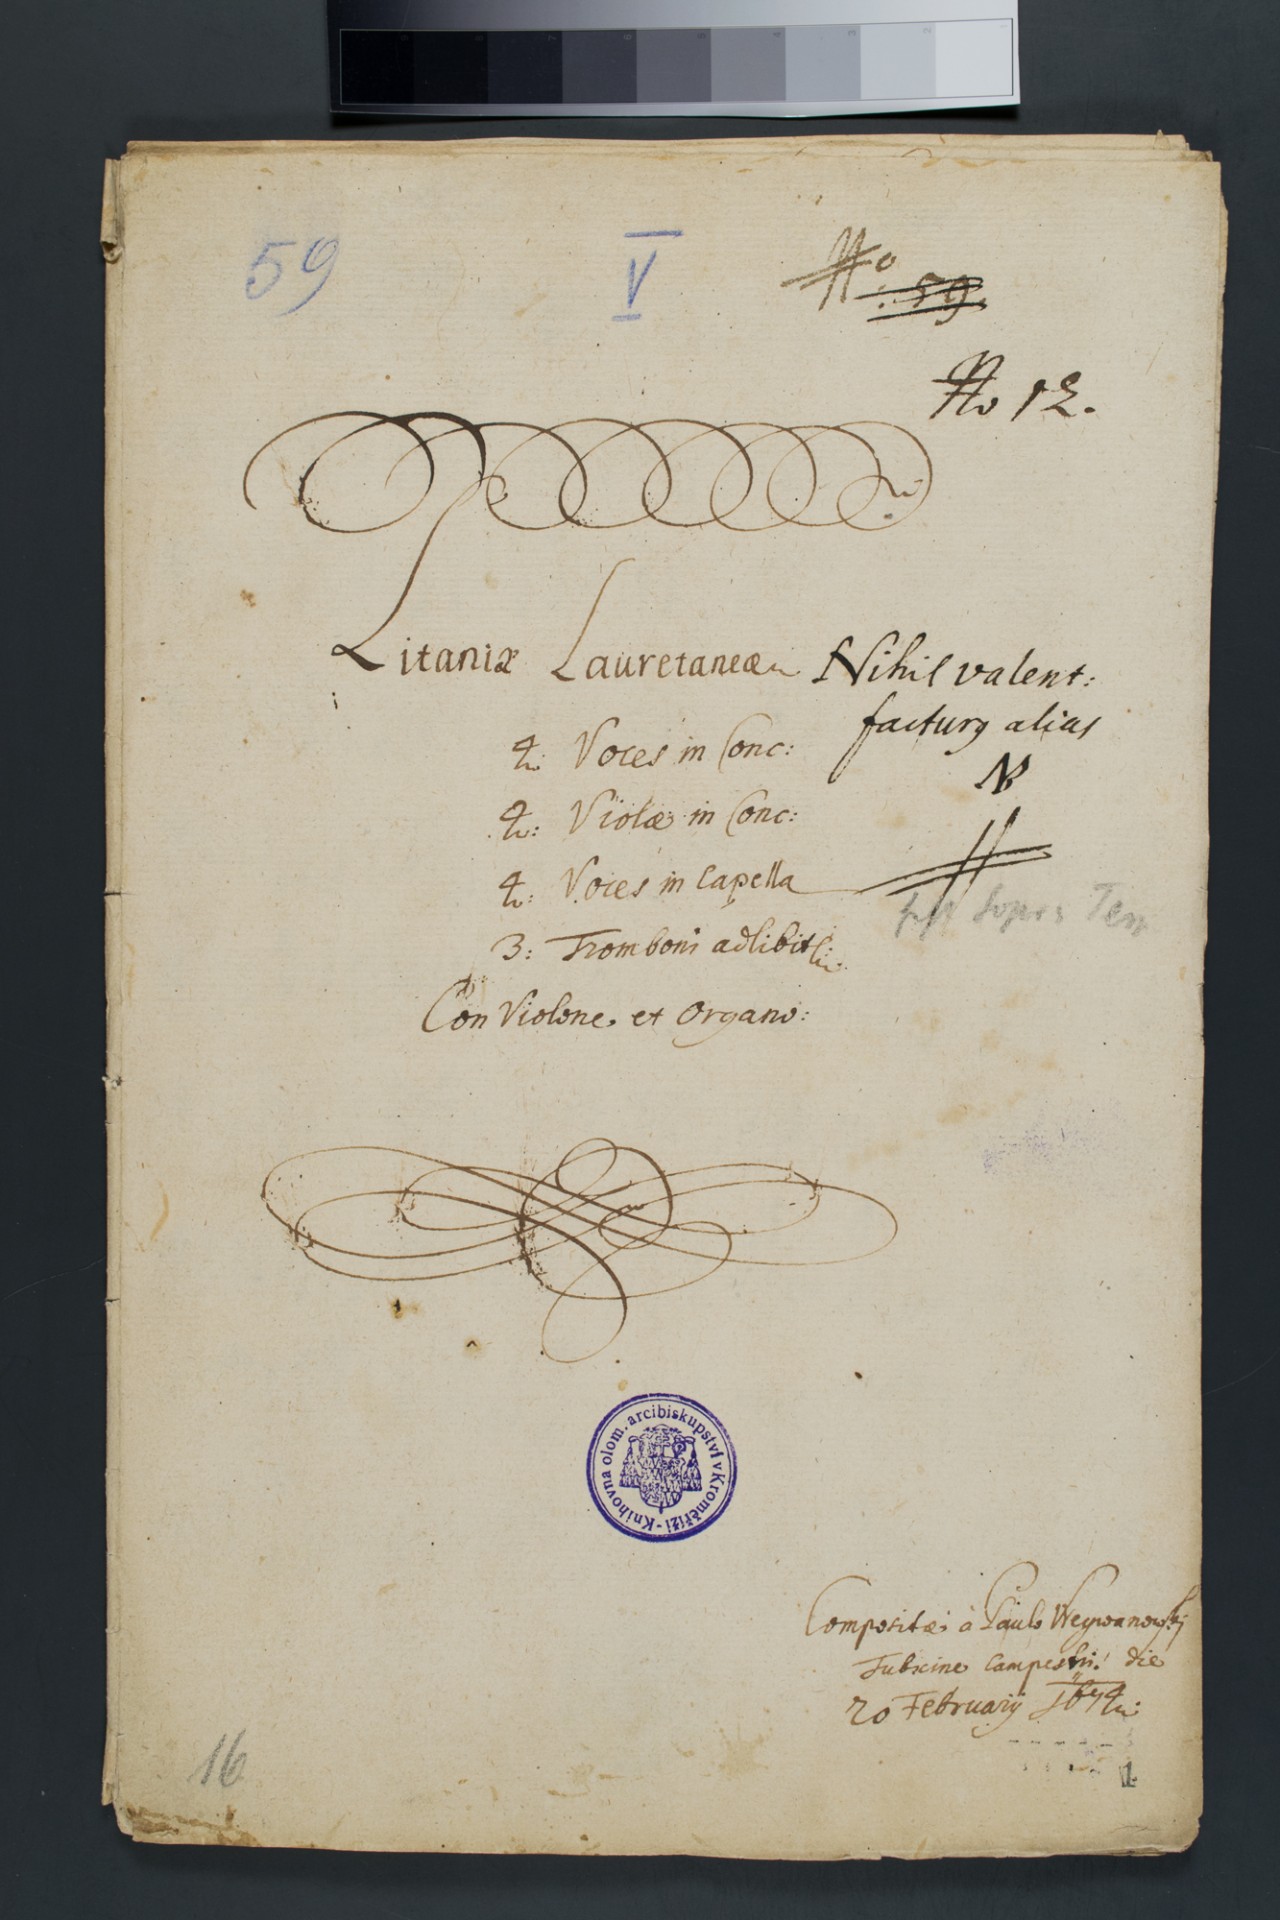 59
V
No: 59.
No 12.
Litaniæ Lauretaneæ Nihil valent:
facturg alias
NB
4: Voces in Conc:
4: Violæ in Conc:
4: Voces in Capella
Sopr: Ten
3: Tromboni adlibit:
Con Violone. et Organo:
Knihovna olom. arcibiskupství v Kroměříži -
Compositæ à Paulo Weywanowskij
Tubicine Campestri. die
20 Februarij 1674:
16
1